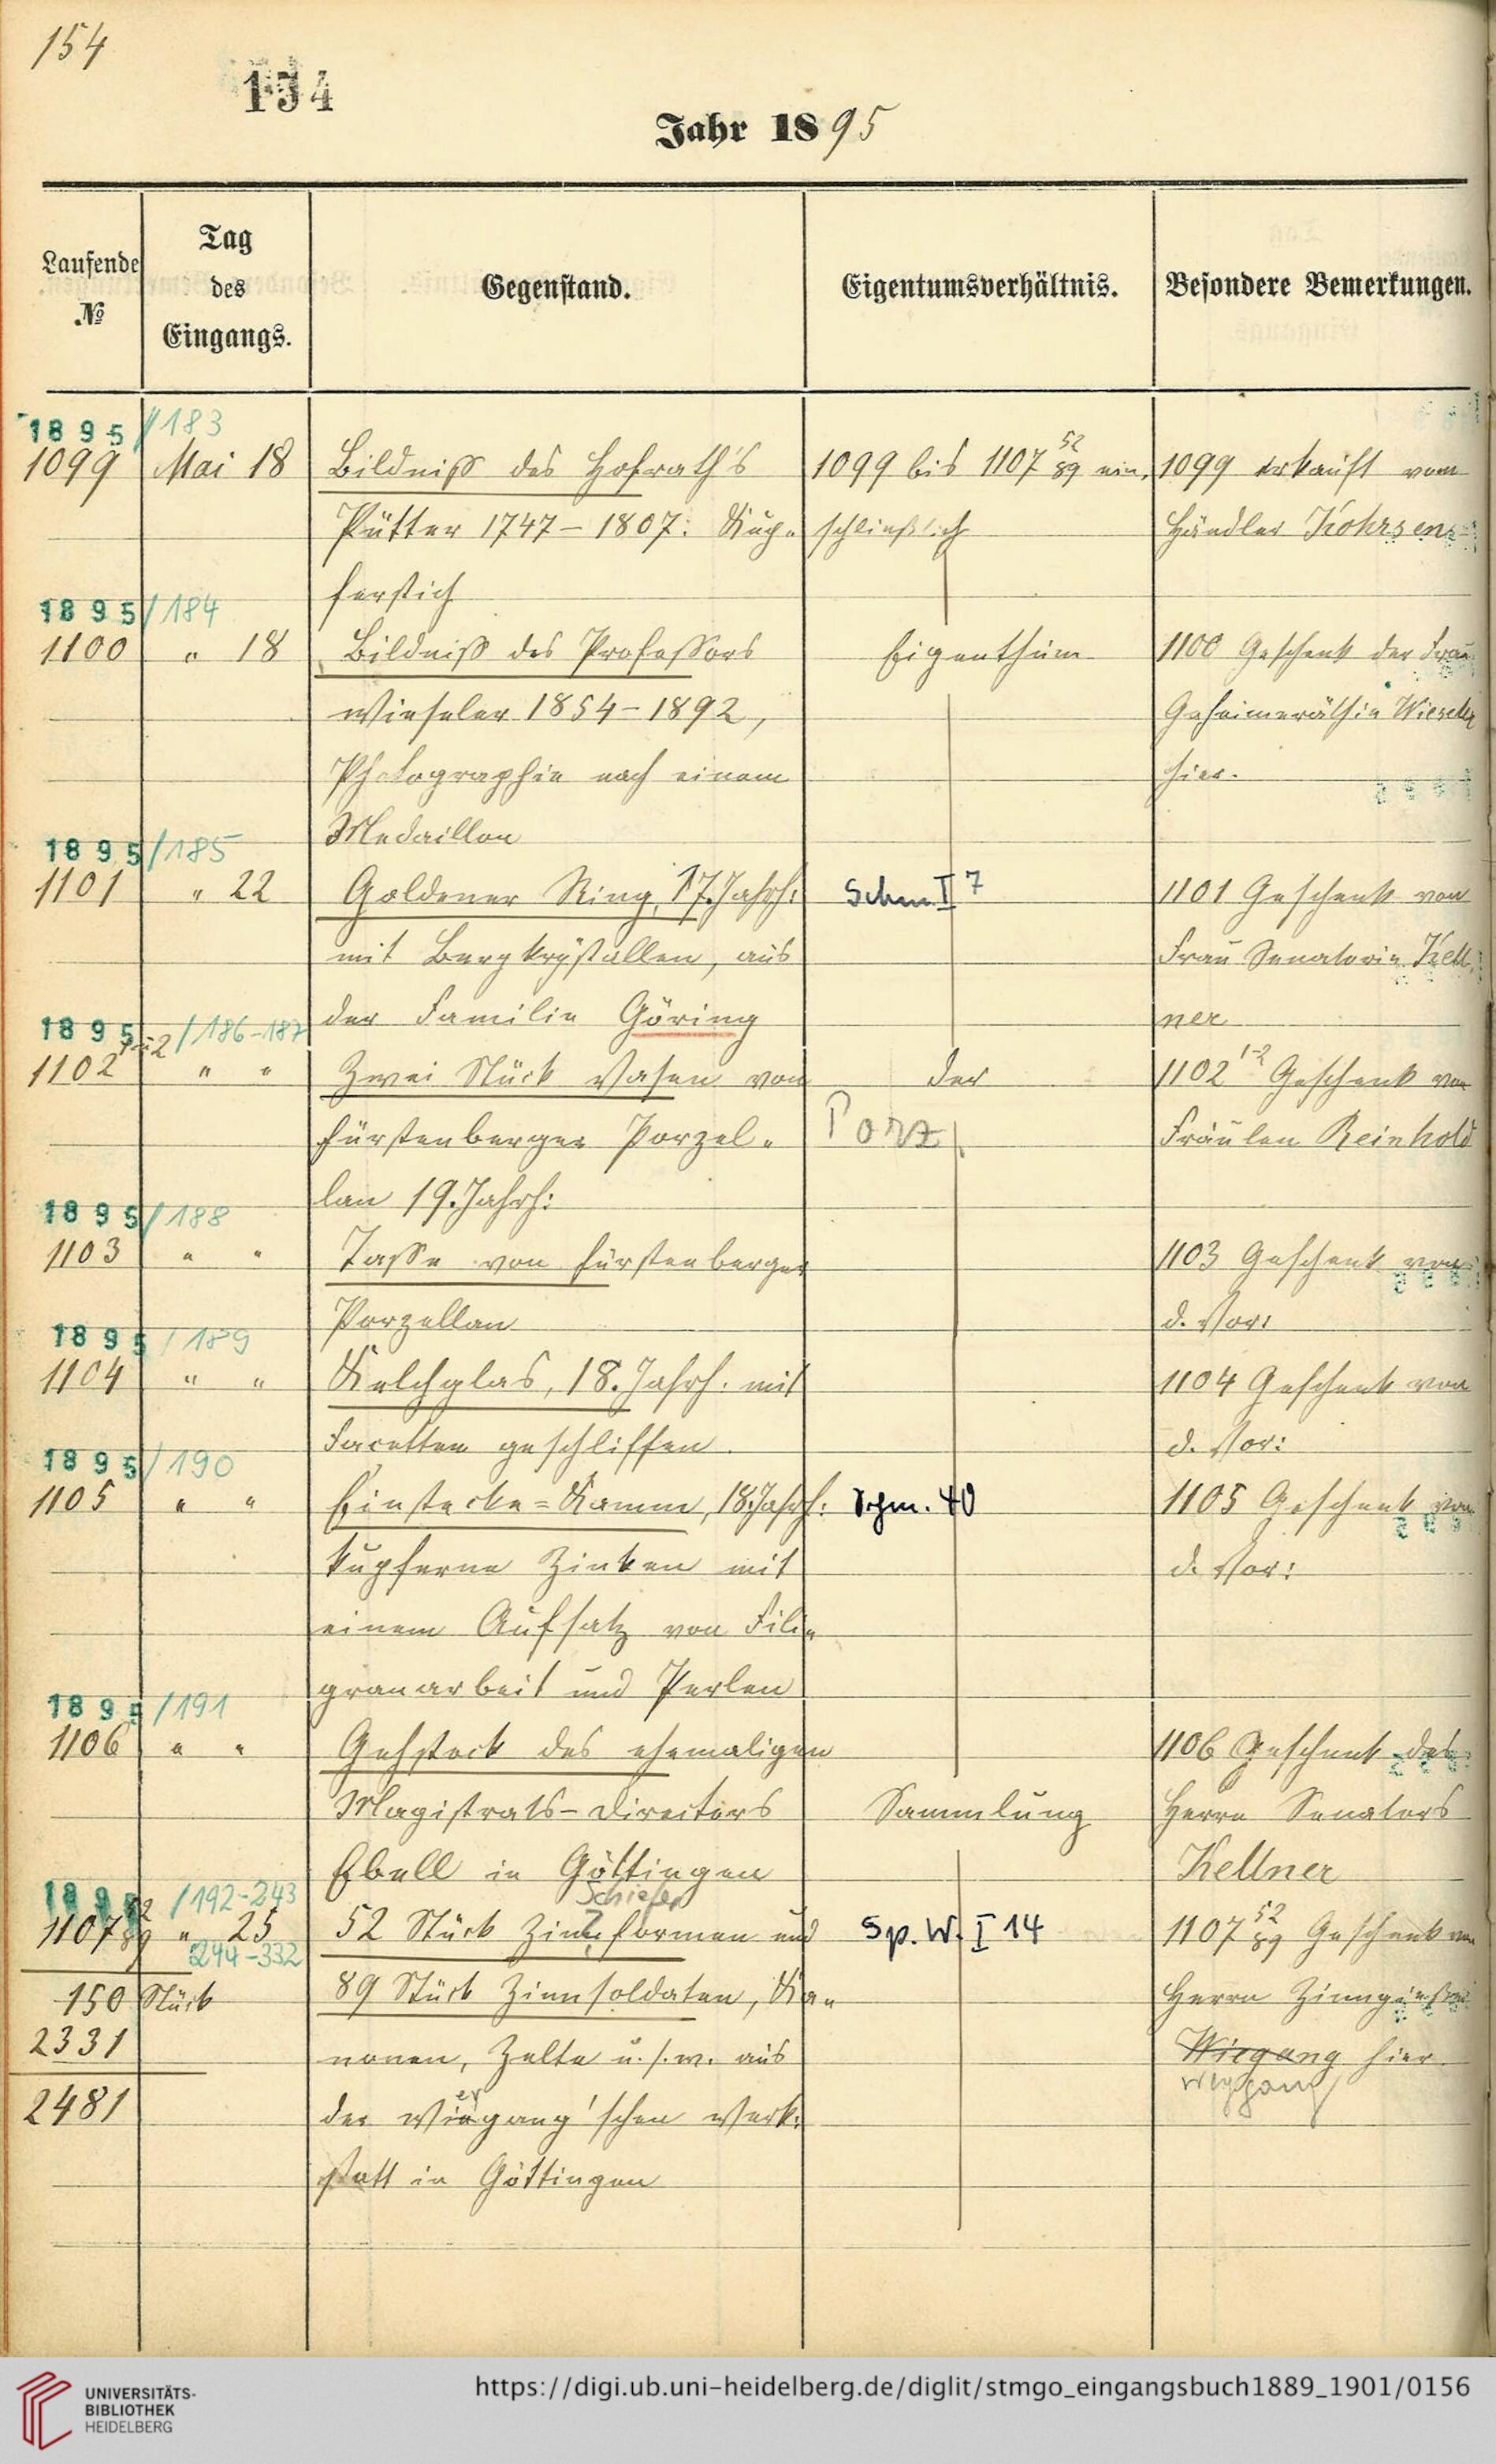 154
154
Jahr 1895
Laufende
№
Tag
des
Eingangs.
Gegenstand.
Eigentumsverhältnis.
Besondere Bemerkungen.
1895/183
1099 Mai 18 Bildniss des Hofrath's 1099 bis 1107 52 89 ein- 1099 erkauft vom
Pütter 1747-1807: Kup- schließlich Händler Kohrsen
ferstich
1895/184
1100 " 18 Bildniss des Professors Eigenthum 1100 Geschenk der Frau
Wieseler 1854-1892, Geheimeräthin Wieseler
Photographie nach einem hier.
Medaillon
1895/185
1101 " 22 Goldener Ring, 17. Jahrh: Schm II 7 1101 Geschenk von
mit Bergkrystallen, aus Frau Senatorin Kell-
der Familie Göring ner
1895/186-187
1102 1-2 " " Zwei Stück Vasen von der 1102 1-2 Geschenk von
Fürstenberger Porzel- Porz Fräulen Reinhold
lan 19. Jahrh:
1895/188
1103 " " Tasse von Fürstenberger 1103 Geschenk von
Porzellan d. Vor:
1895/189
1104 " " Kelchglas, 18. Jahrh. mit 1104 Geschenk von
Facetten geschliffen. d. Vor:
1895/190
1105 " " Einstecke=Kamm, 18. Jahrh: Schm. 40 1105 Geschenk von
kupferne Zinken mit d. Vor:
einem Aufsatz von Fili-
granarbeit und Perlen
1895/191
1106 " " Gehstock des ehemaligen 1106 Geschenk des
Magistrats-Directors Sammlung Herrn Senators
Ebell in Göttingen Kellner
1895/192-243
Schiefer
1107 52 89 " 25 52 Stück Zinnformen und Sp. W. I 14 1107 52 89 Geschenk von
244-332
150 Stück 89 Stück Zinnsoldaten, Ka- Herrn Zinngießer
2331 nonen, Zelte u. s. w. aus Wiegang hier
Weygang
2481 der Wiegang'schen Werk-
er
statt in Göttingen
UNIVERSITÄTS-
BIBLIOTHEK
HEIDELBERG
https://digi.ub.uni-heidelberg.de/diglit/stmgo_eingangsbuch1889_1901/0156